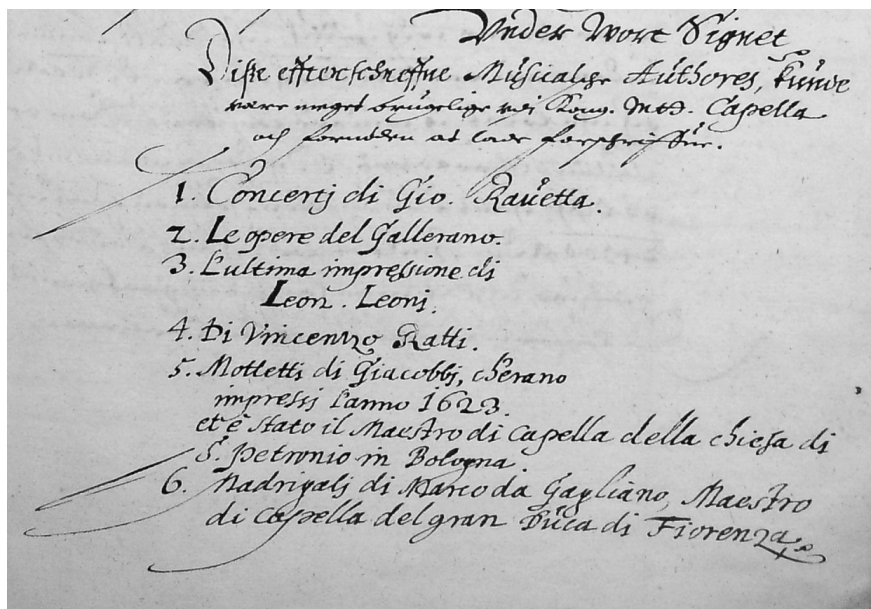 Vnder Wort Signet
Disse effterschreffne Müsicalsche Aüthores, künde
vare meget brugelige vdj Kong. Mtts. Capella
och formeden at lade forschriffüe.
1. Concertj di Gio. Raüetta.
2. Le opere del Gallerano.
3. L'ultima impressione di
Leon. Leonj.
4. Di Vincenzo Ratti.
5. Mottetti di Giacobbj, cherano
impressj L'anno 1623.
et è stato il Maestro di Capella della chiesa di
S. Petronio in Bologna.
6. Madrigalj di Marco da Gagliano, Maestro
di Capella del gran Düca di Fiorenza,